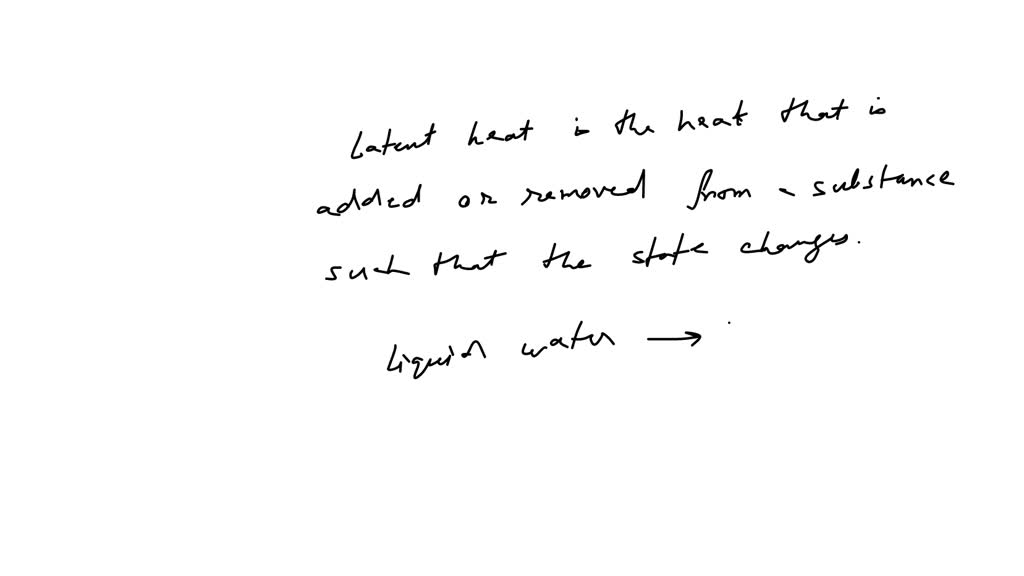 Latent heat is the heat that is
added or removed from a substance
such that the state changes.
Liquid water →